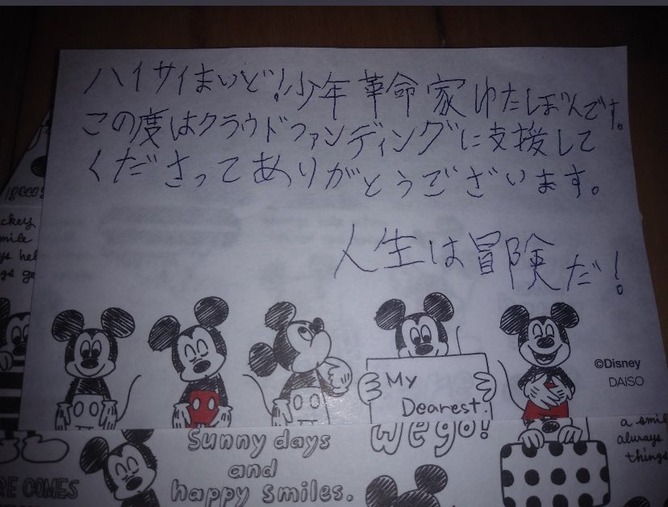 ハイサイまいど!少年革命家ゆたぼんです。
この度はクラウドファンディングに支援して
くださってありがとうございます。
人生は冒険だ!
©Disney
DAISO
My
Dearest.
we go!
Sunny days
and
happy smiles.
RE COMES
a smil
always
things
ckey
mile
ys hel
gs ge